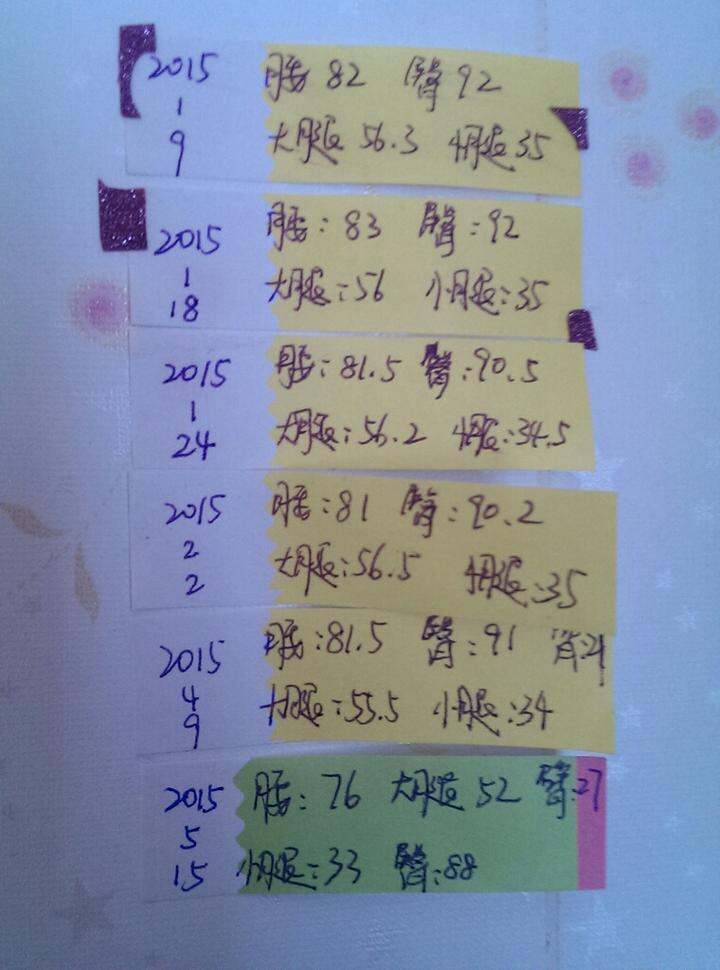 2015
1
9
腰 82 臀 92
大腿 56.3 小腿 35
2015
1
18
腰:83 臀:92
大腿:56 小腿:35
2015
1
24
腰:81.5 臀:90.5
大腿:56.2 小腿:34.5
2015
2
2
腰:81 臀:90.2
大腿:56.5 小腿:35
2015
4
9
腰:81.5 臀:91
大腿:55.5 小腿:34
2015
5
15
腰:76 大腿 52 臂:27
小腿:33 臀:88